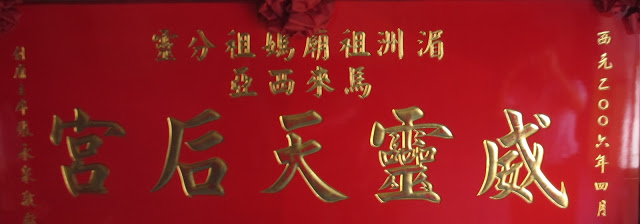 西元乙〇〇六年四月
湄洲祖廟媽祖分靈
馬來西亞
威靈天后宮